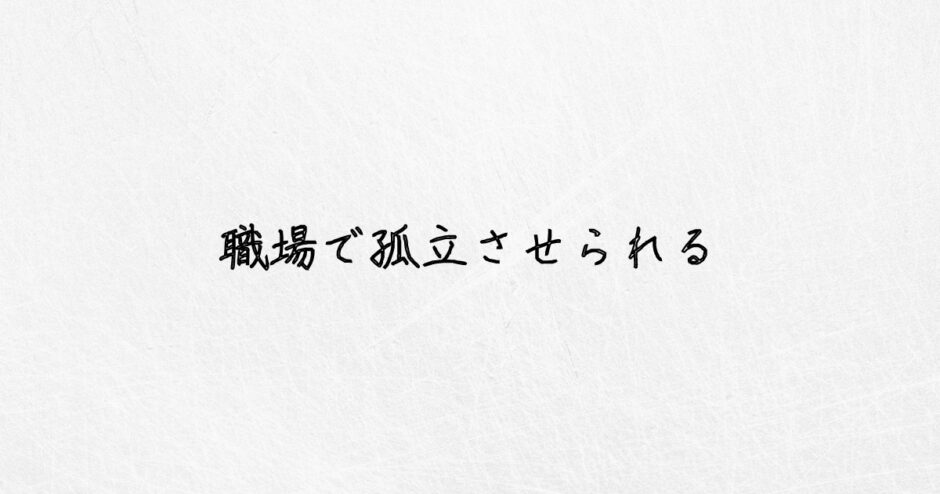 職場で孤立させられる